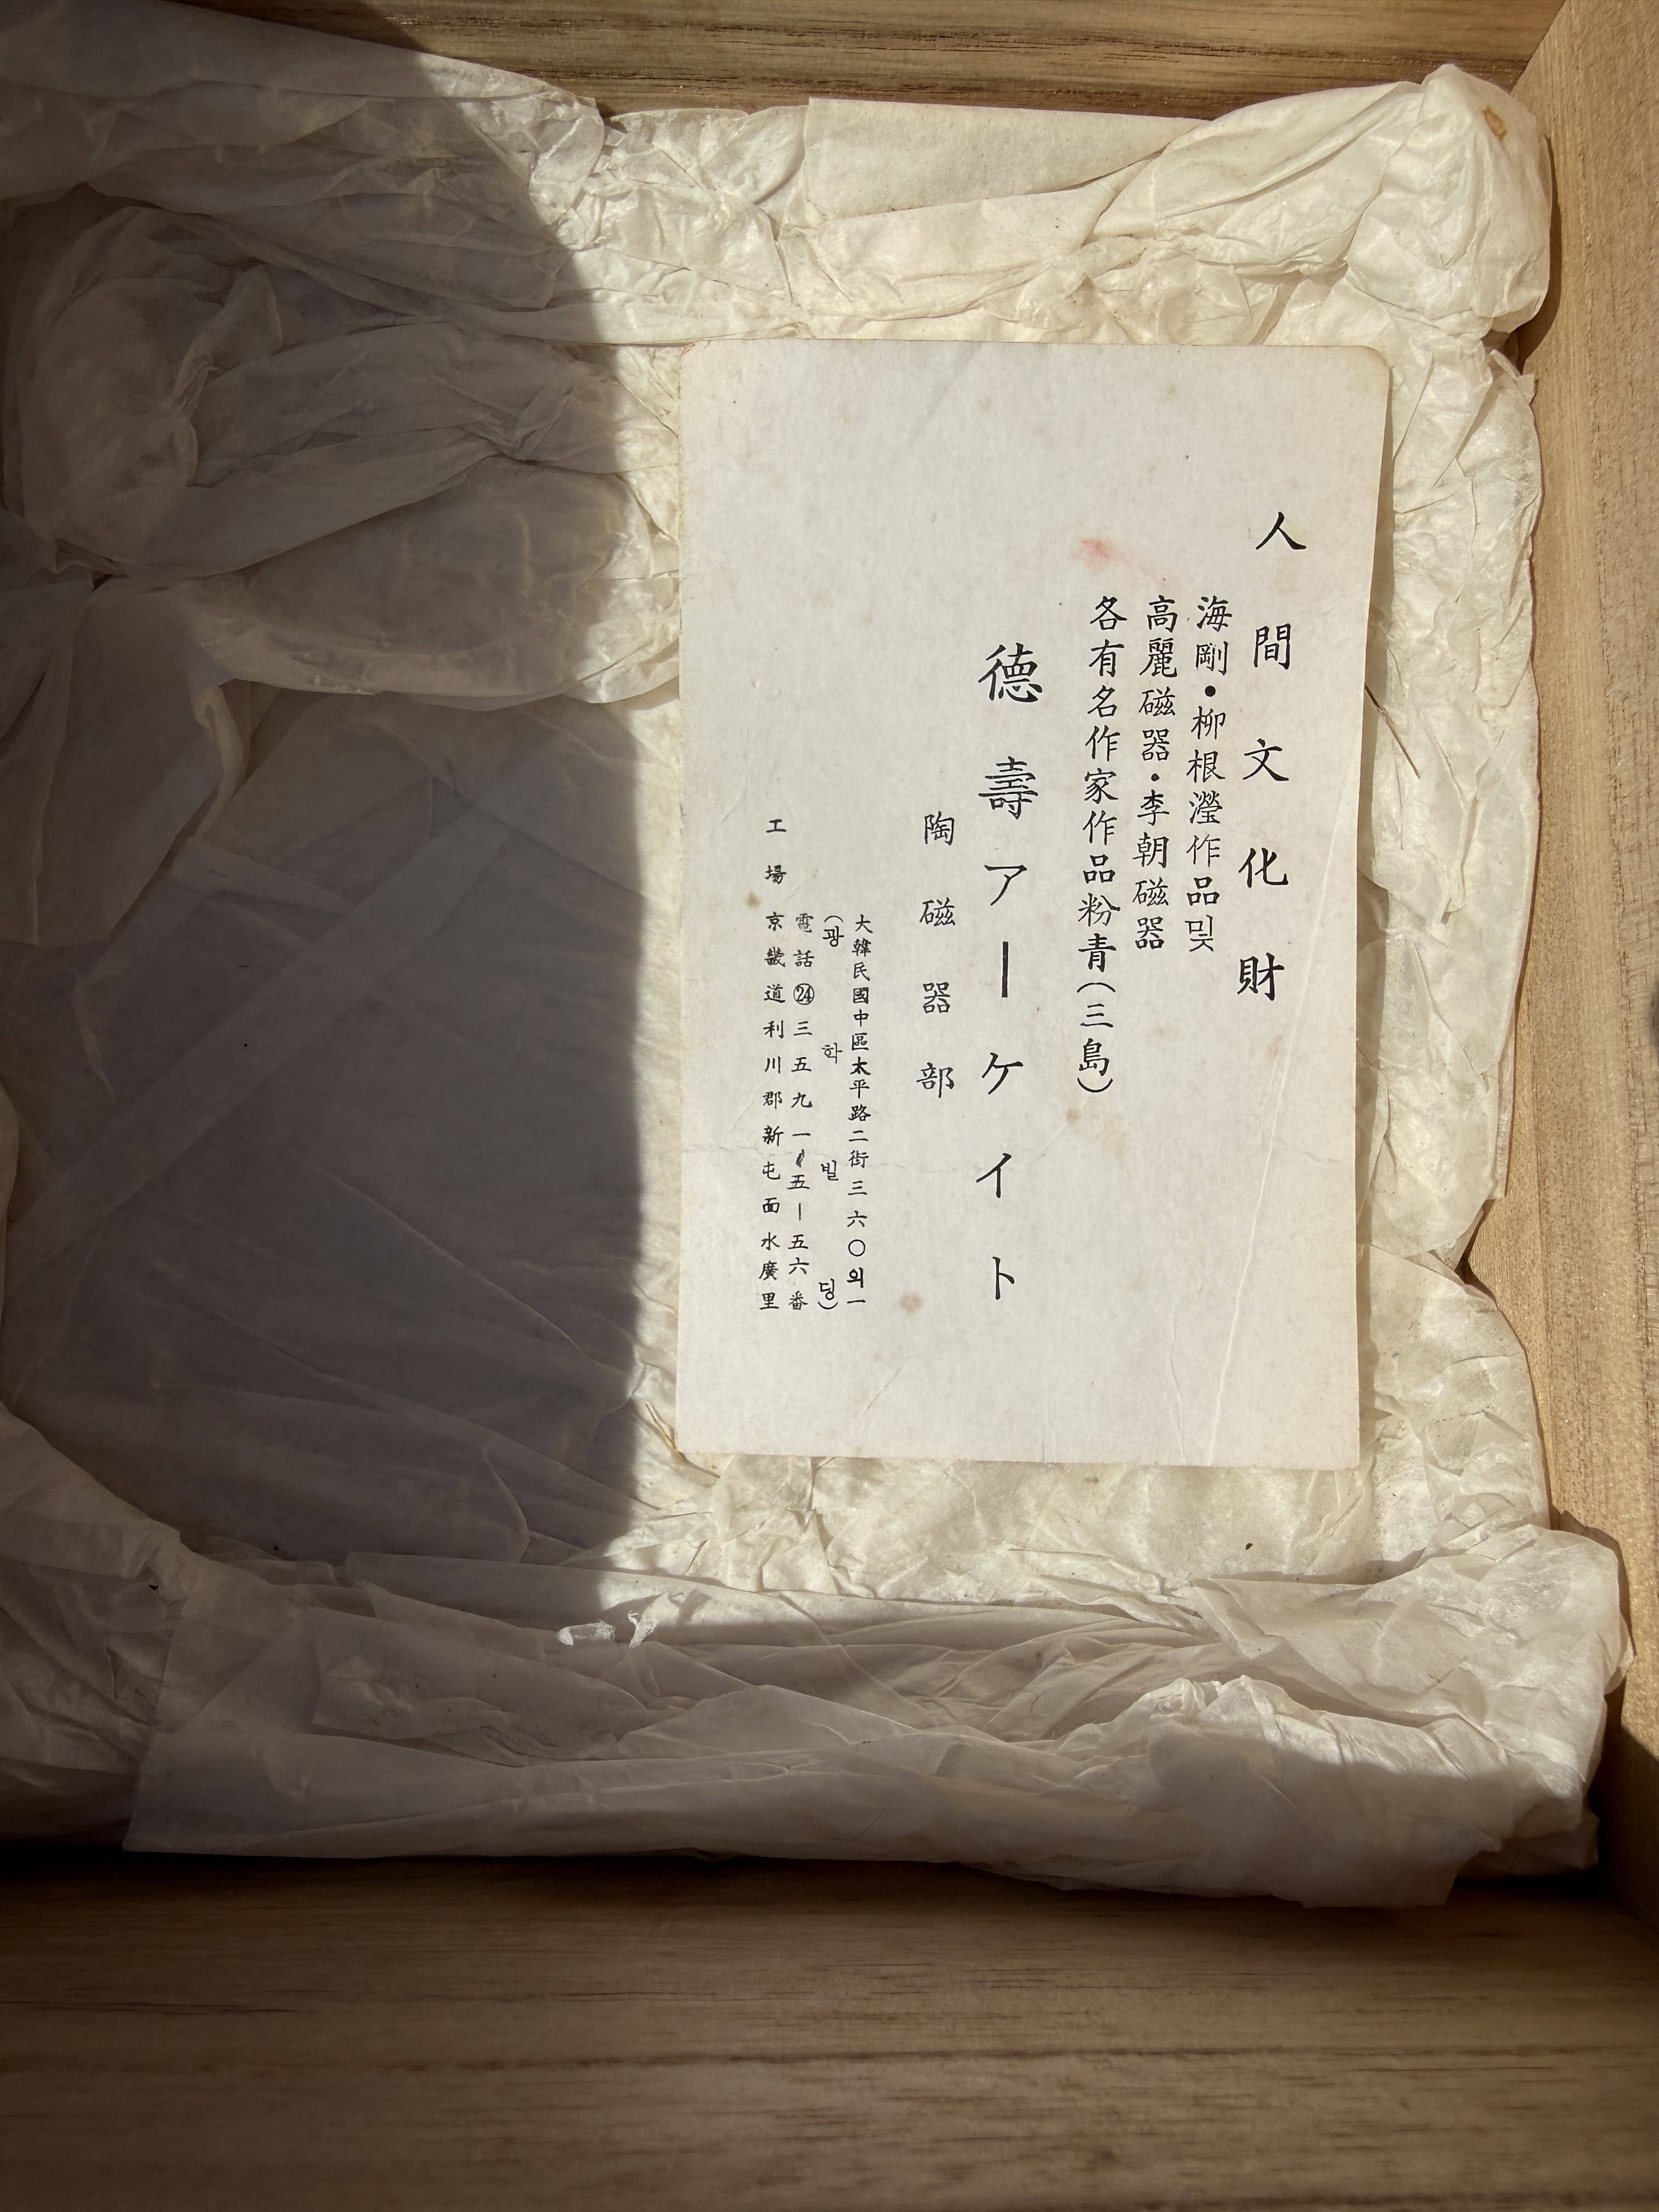 人間文化財
海剛・柳根瀅作品및
高麗磁器・李朝磁器
各有名作家作品粉青(三島)
德壽アーケイト
陶磁器部
大韓民國中區太平路二街三六〇외一
(광학빌딩)
電話㉔三五九一〃五ー五六番
工場 京畿道利川郡新屯面水廣里